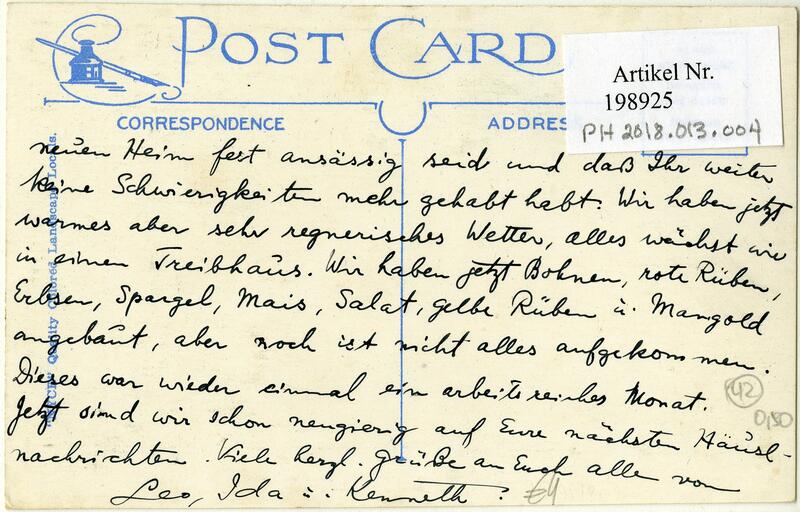 POST CARD
Artikel Nr.
198925
PH 2018.013.004
CORRESPONDENCE
ADDRES
neuen Heim fest ansässig seid und daß Ihr weiter
keine Schwierigkeiten mehr gehabt habt. Wir haben jetzt
warmes aber sehr regnerisches Wetter, alles wächst wie
in einem Treibhaus. Wir haben jetzt Bohnen, rote Rüben,
Erbsen, Spargel, Mais, Salat, gelbe Rüben u. Mangold
angebaut, aber noch ist nicht alles aufgekommen.
Dieses war wieder einmal ein arbeitsreiches Monat.
Jetzt sind wir schon neugierig auf Eure nächsten Häusl-
nachrichten. Viele herzl. Grüße an Euch alle von
Leo, Ida u. Kenneth
42
0,50
Quality Colored Landscape Locals.